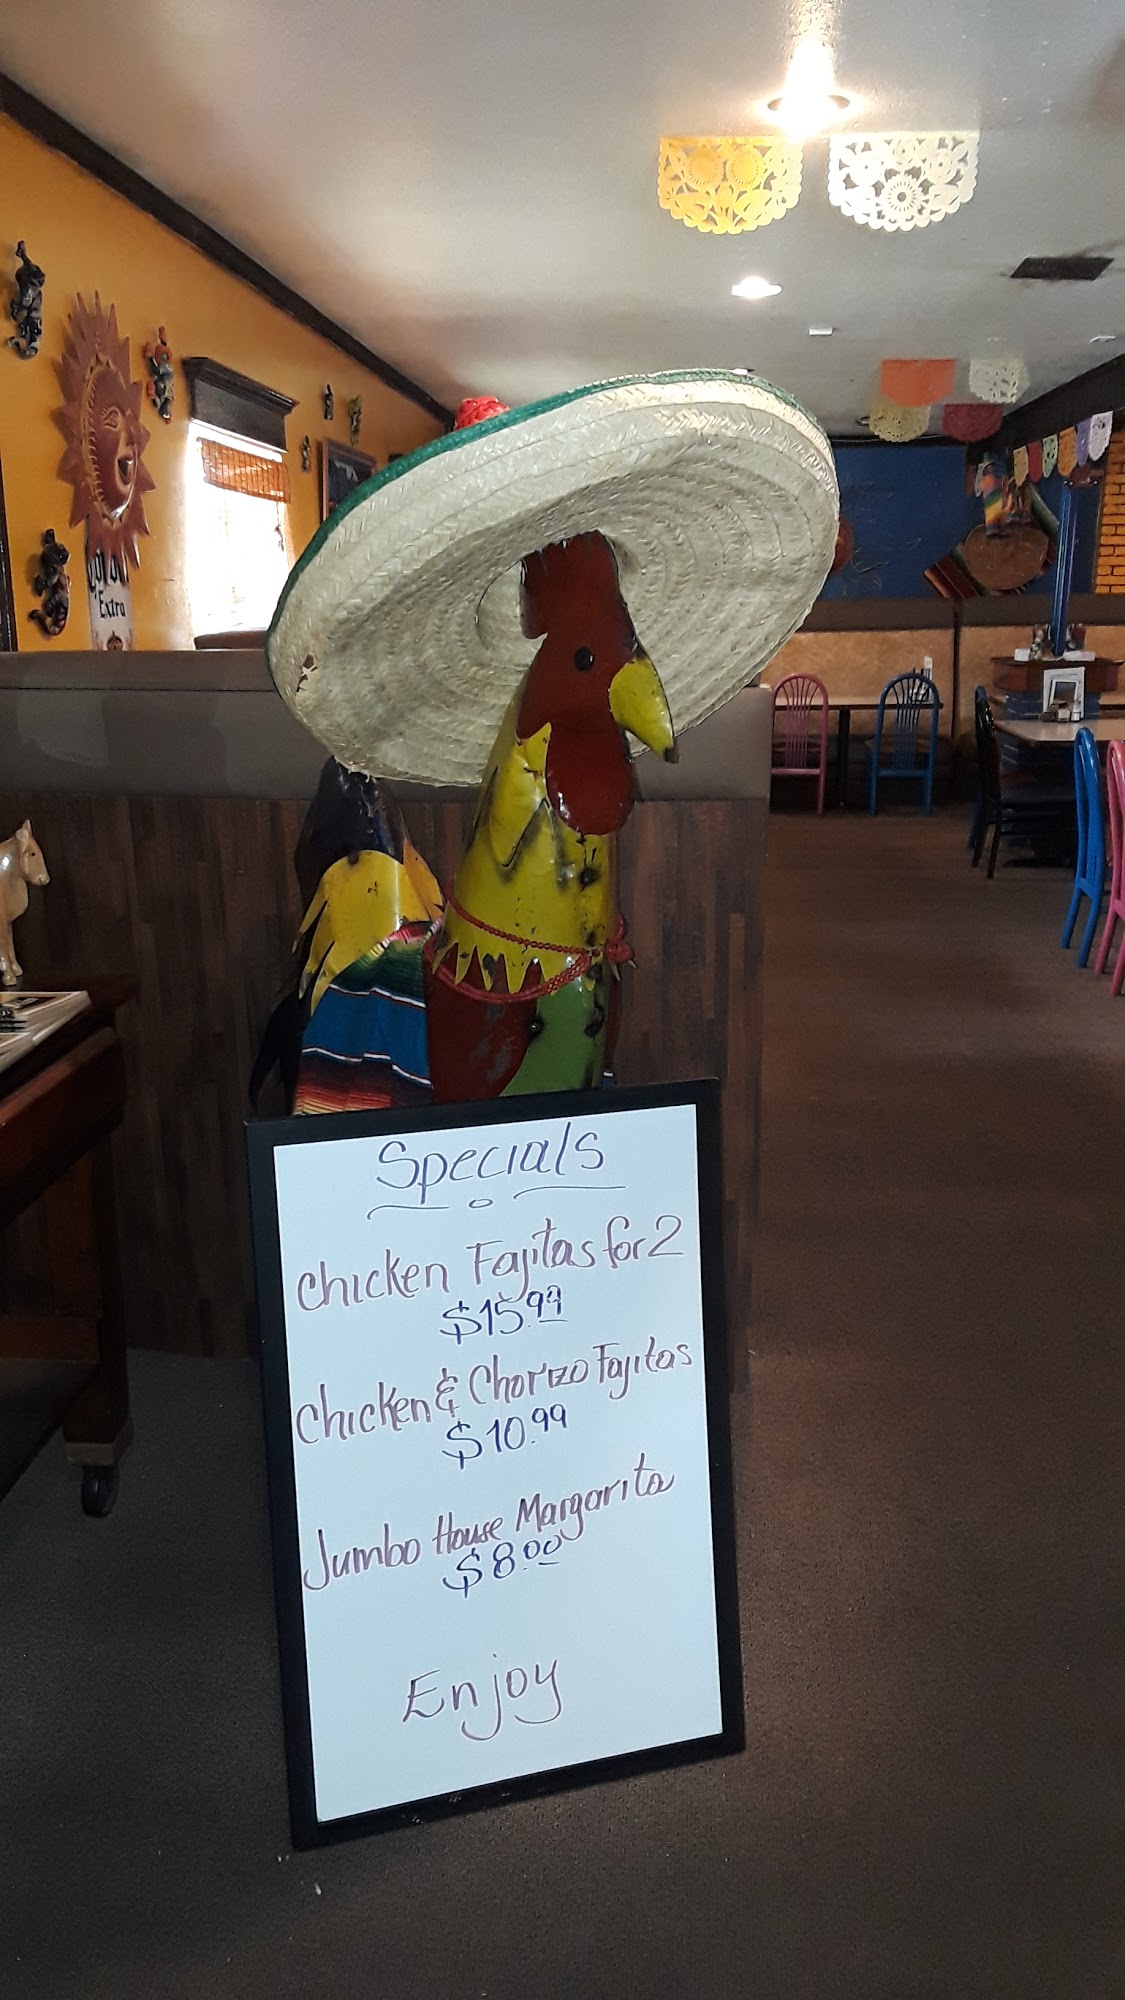 Extra
Specials
Chicken Fajitas for 2
$15.99
Chicken & Chorizo Fajitas
$10.99
Jumbo House Margarita
$8.00
Enjoy